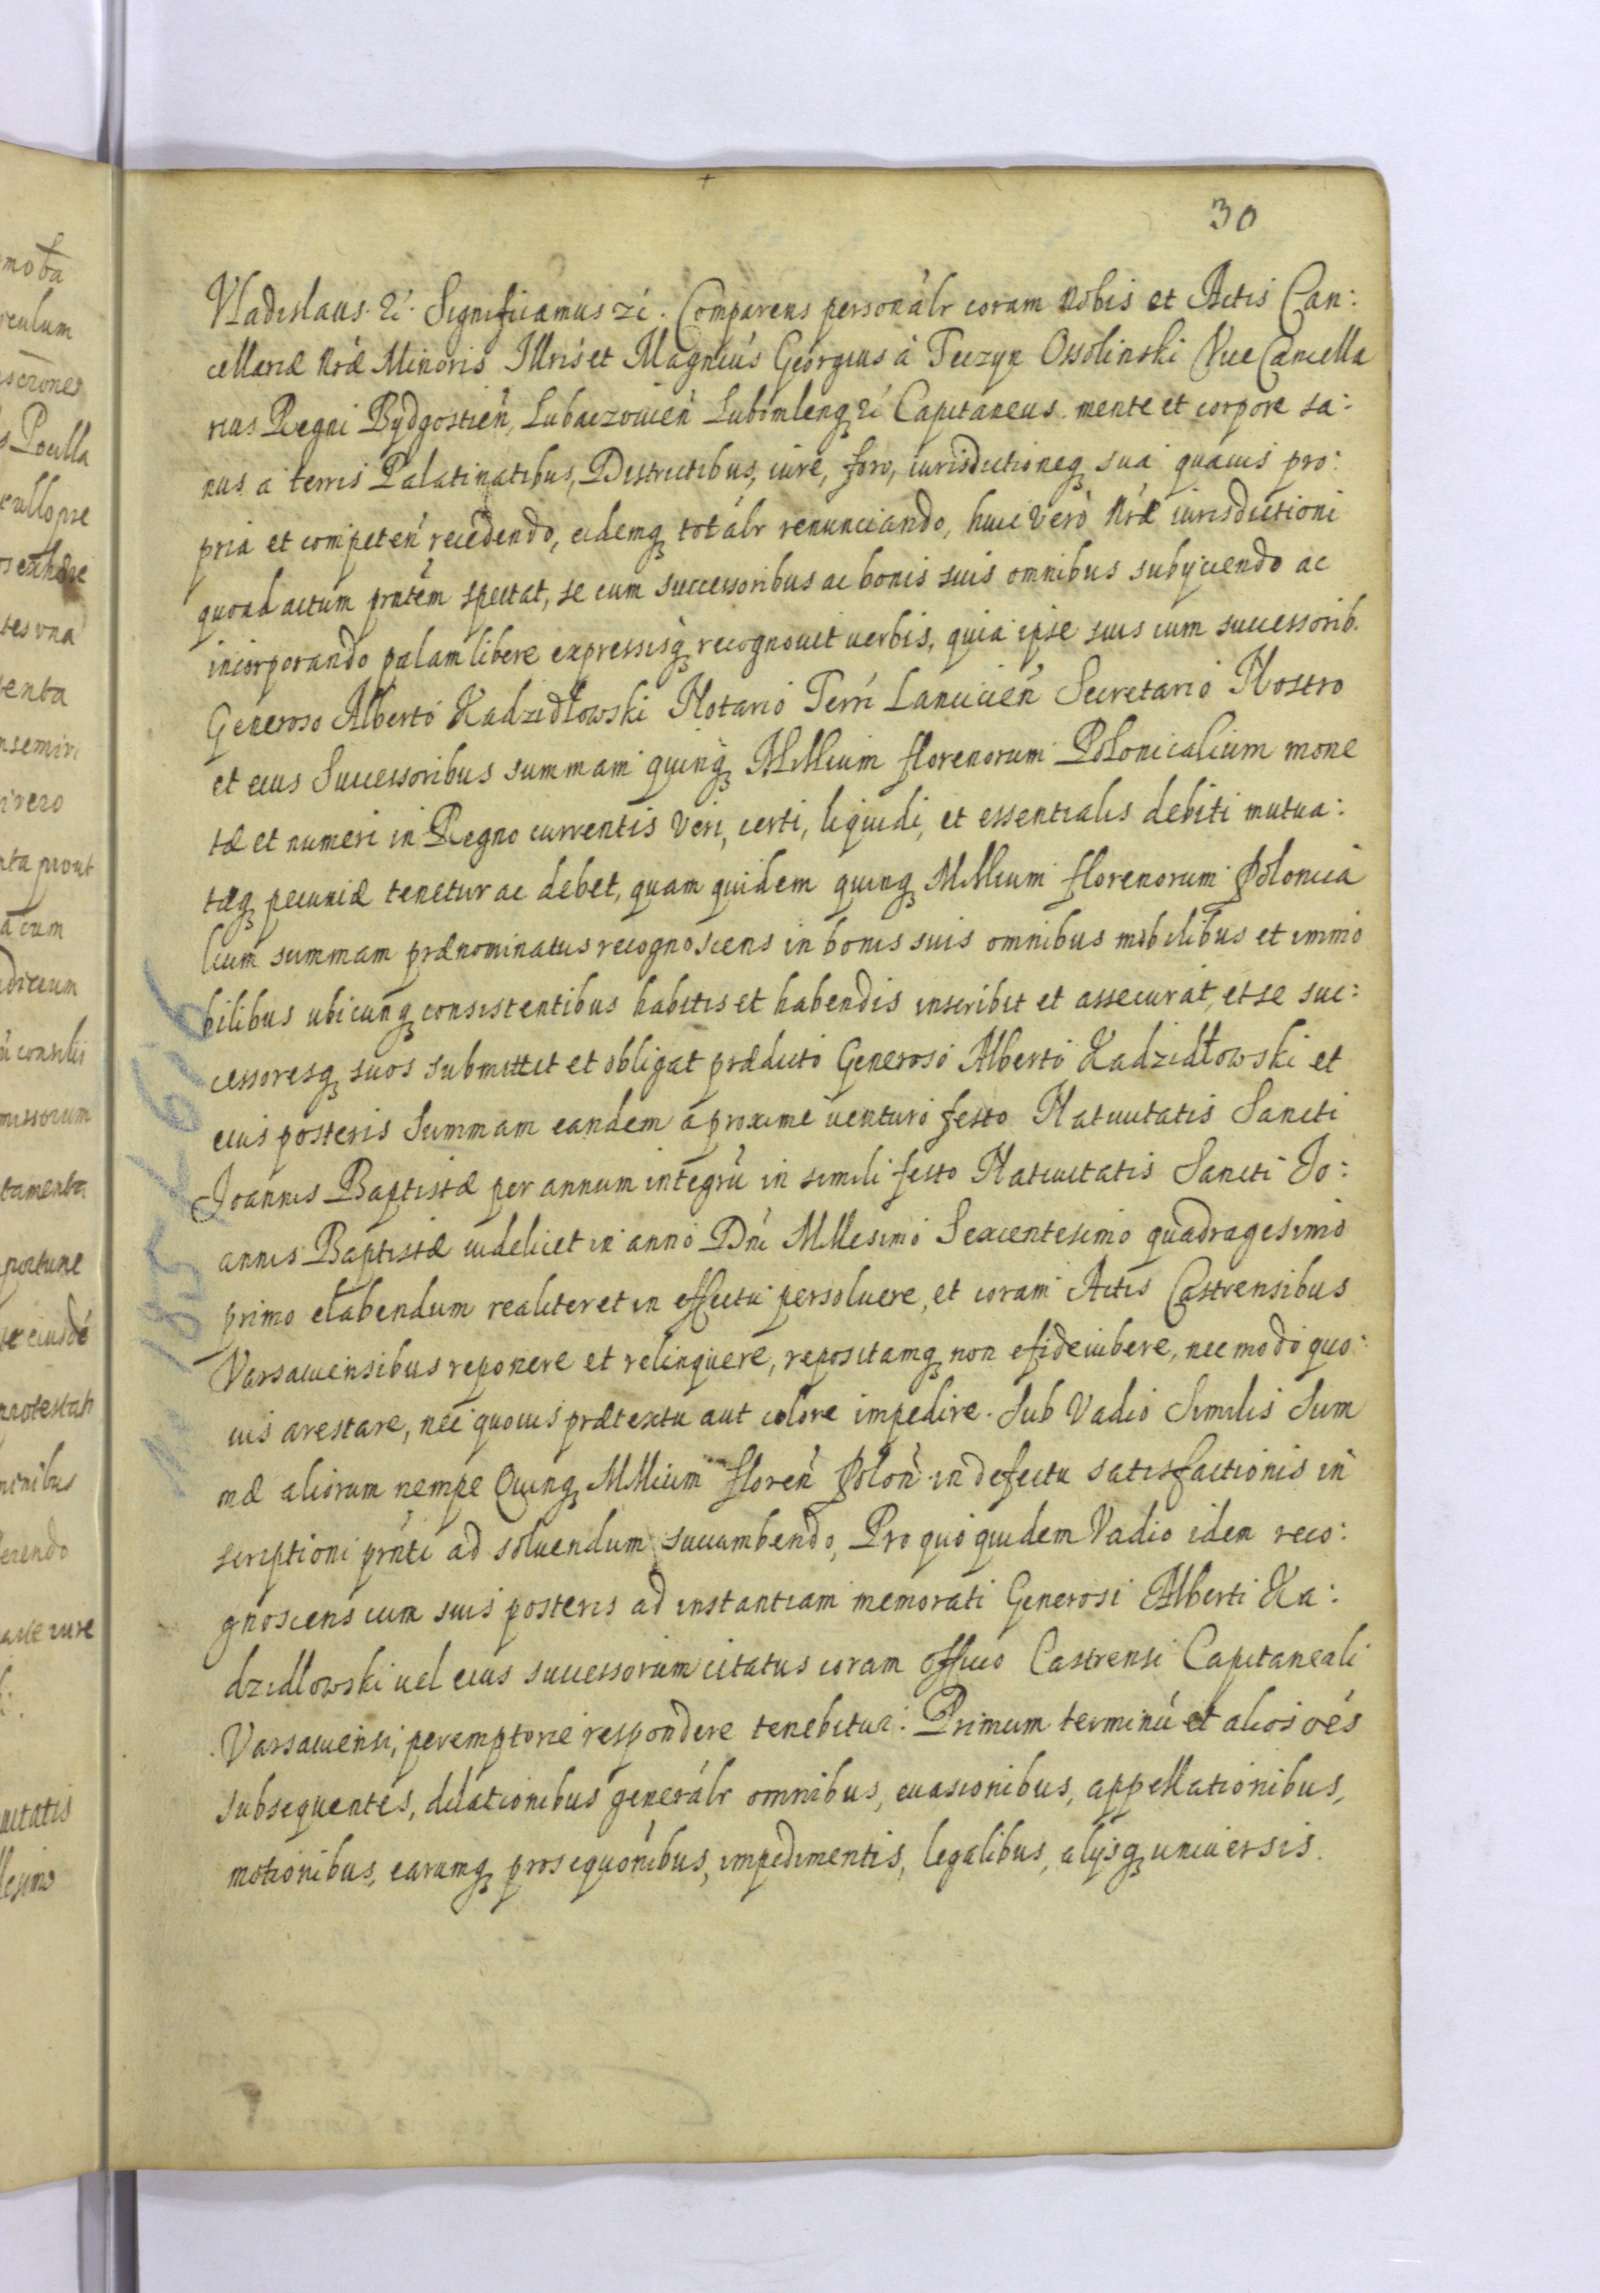 30
Vladislaus. &c. Significamus &c. Comparens personalr coram Nobis et Actis Can:
cellariæ Nræ Minoris Illris et Magncus Georgius à Teczyn Ossolinski ViceCancella
rius Regni Bydgostien, Lubaczowien Lubomlenq &c Capitaneus mente et corpore sa:
nus a terris Palatinatibus, Districtibus, iure, foro, iurisdictioneq sua quauis pro:
pria et competen recedendo, eidemq totalr renunciando, huic Verò Nræ iurisdictioni
quoad actum prntem spectat, se cum successoribus ac bonis suis omnibus subijciendo ac
incorporando palam libere expressisq recognouit uerbis, quia ipse suis cum successorib.
Generoso Alberto Kadzidłowski Notario Terri Lancicien Secretario Nostro
et eius Successoribus summam quinq Millium florenorum Polonicalium mone
tæ et numeri in Regno currentis Veri, certi, liquidi, et essentialis debiti mutua:
tæq pecuniæ tenetur ac debet, quam quidem quinq Millium florenorum Polonica
lium summam prænominatus recognoscens in bonis suis omnibus mobilibus et immo
bilibus ubicunq consistentibus habitis et habendis inscribit et assecurat, et se suc:
cessoresq suos submittit et obligat prædicto Generoso Alberto Kadzidłowski et
eius posteris Summam eandem a proxime uenturo festo Natiuitatis Sancti
Joannis Baptistæ per annum integrū in simili festo Natiuitatis Sancti Jo:
annis Baptistæ uidelicet in anno Dni Millesimo Sexcentesimo quadragesimo
primo elabendum realiter et in effectu persoluere, et coram Actis Castrensibus
Varsauiensibus reponere et relinquere, repositamq non efideiubere, nec modo quo:
uis arestare, nec quouis prætextu aut colore impedire. Sub Vadio Similis Sum
mæ aliorum nempe Quinq Millium floren Polon in defectu satisfactionis in
scriptioni prnti ad soluendum succumbendo, Pro quo quidem Vadio idem reco:
gnoscens cum suis posteris ad instantiam memorati Generosi Alberti Ka:
dzidlowski uel eius successorum citatus coram officio Castrensi Capitaneali
Varsauiensi, peremptorie respondere tenebitur. Primum terminū et alios oes
subsequentes, dilationibus generalr omnibus, euasionibus, appellationibus,
motionibus, earumq prosequonibus, impedimentis, legalibus, alijsq uniuersis.